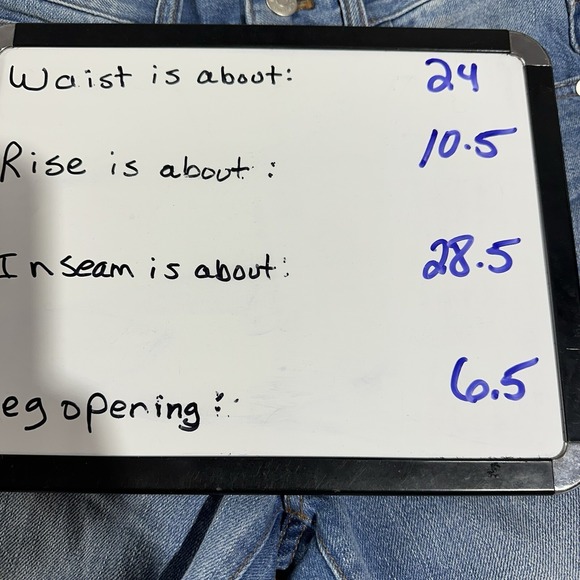 Waist is about: 24
Rise is about: 10.5
Inseam is about: 28.5
eg opening: 6.5